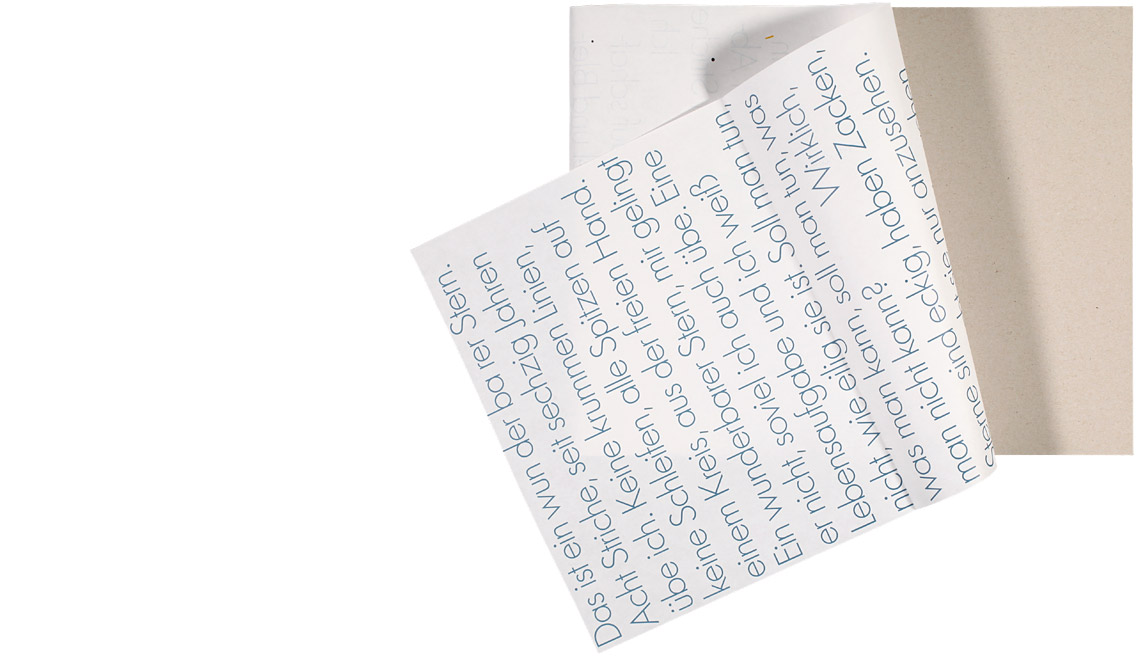 Das ist ein wun der ba rer Stern.
Acht Striche, seit sechzig Jahren
übe ich. Keine krummen Linien,
keine Schleifen, alle Spitzen auf
einem Kreis, aus der freien Hand.
Ein wunderbarer Stern, mir gelingt
er nicht, soviel ich auch übe. Eine
Lebensaufgabe und ich weiß
nicht, wie eilig sie ist. Soll man tun,
was man kann, soll man tun, was
man nicht kann? Wirklich,
Sterne sind eckig, haben Zacken,
sie nur anzusehen.